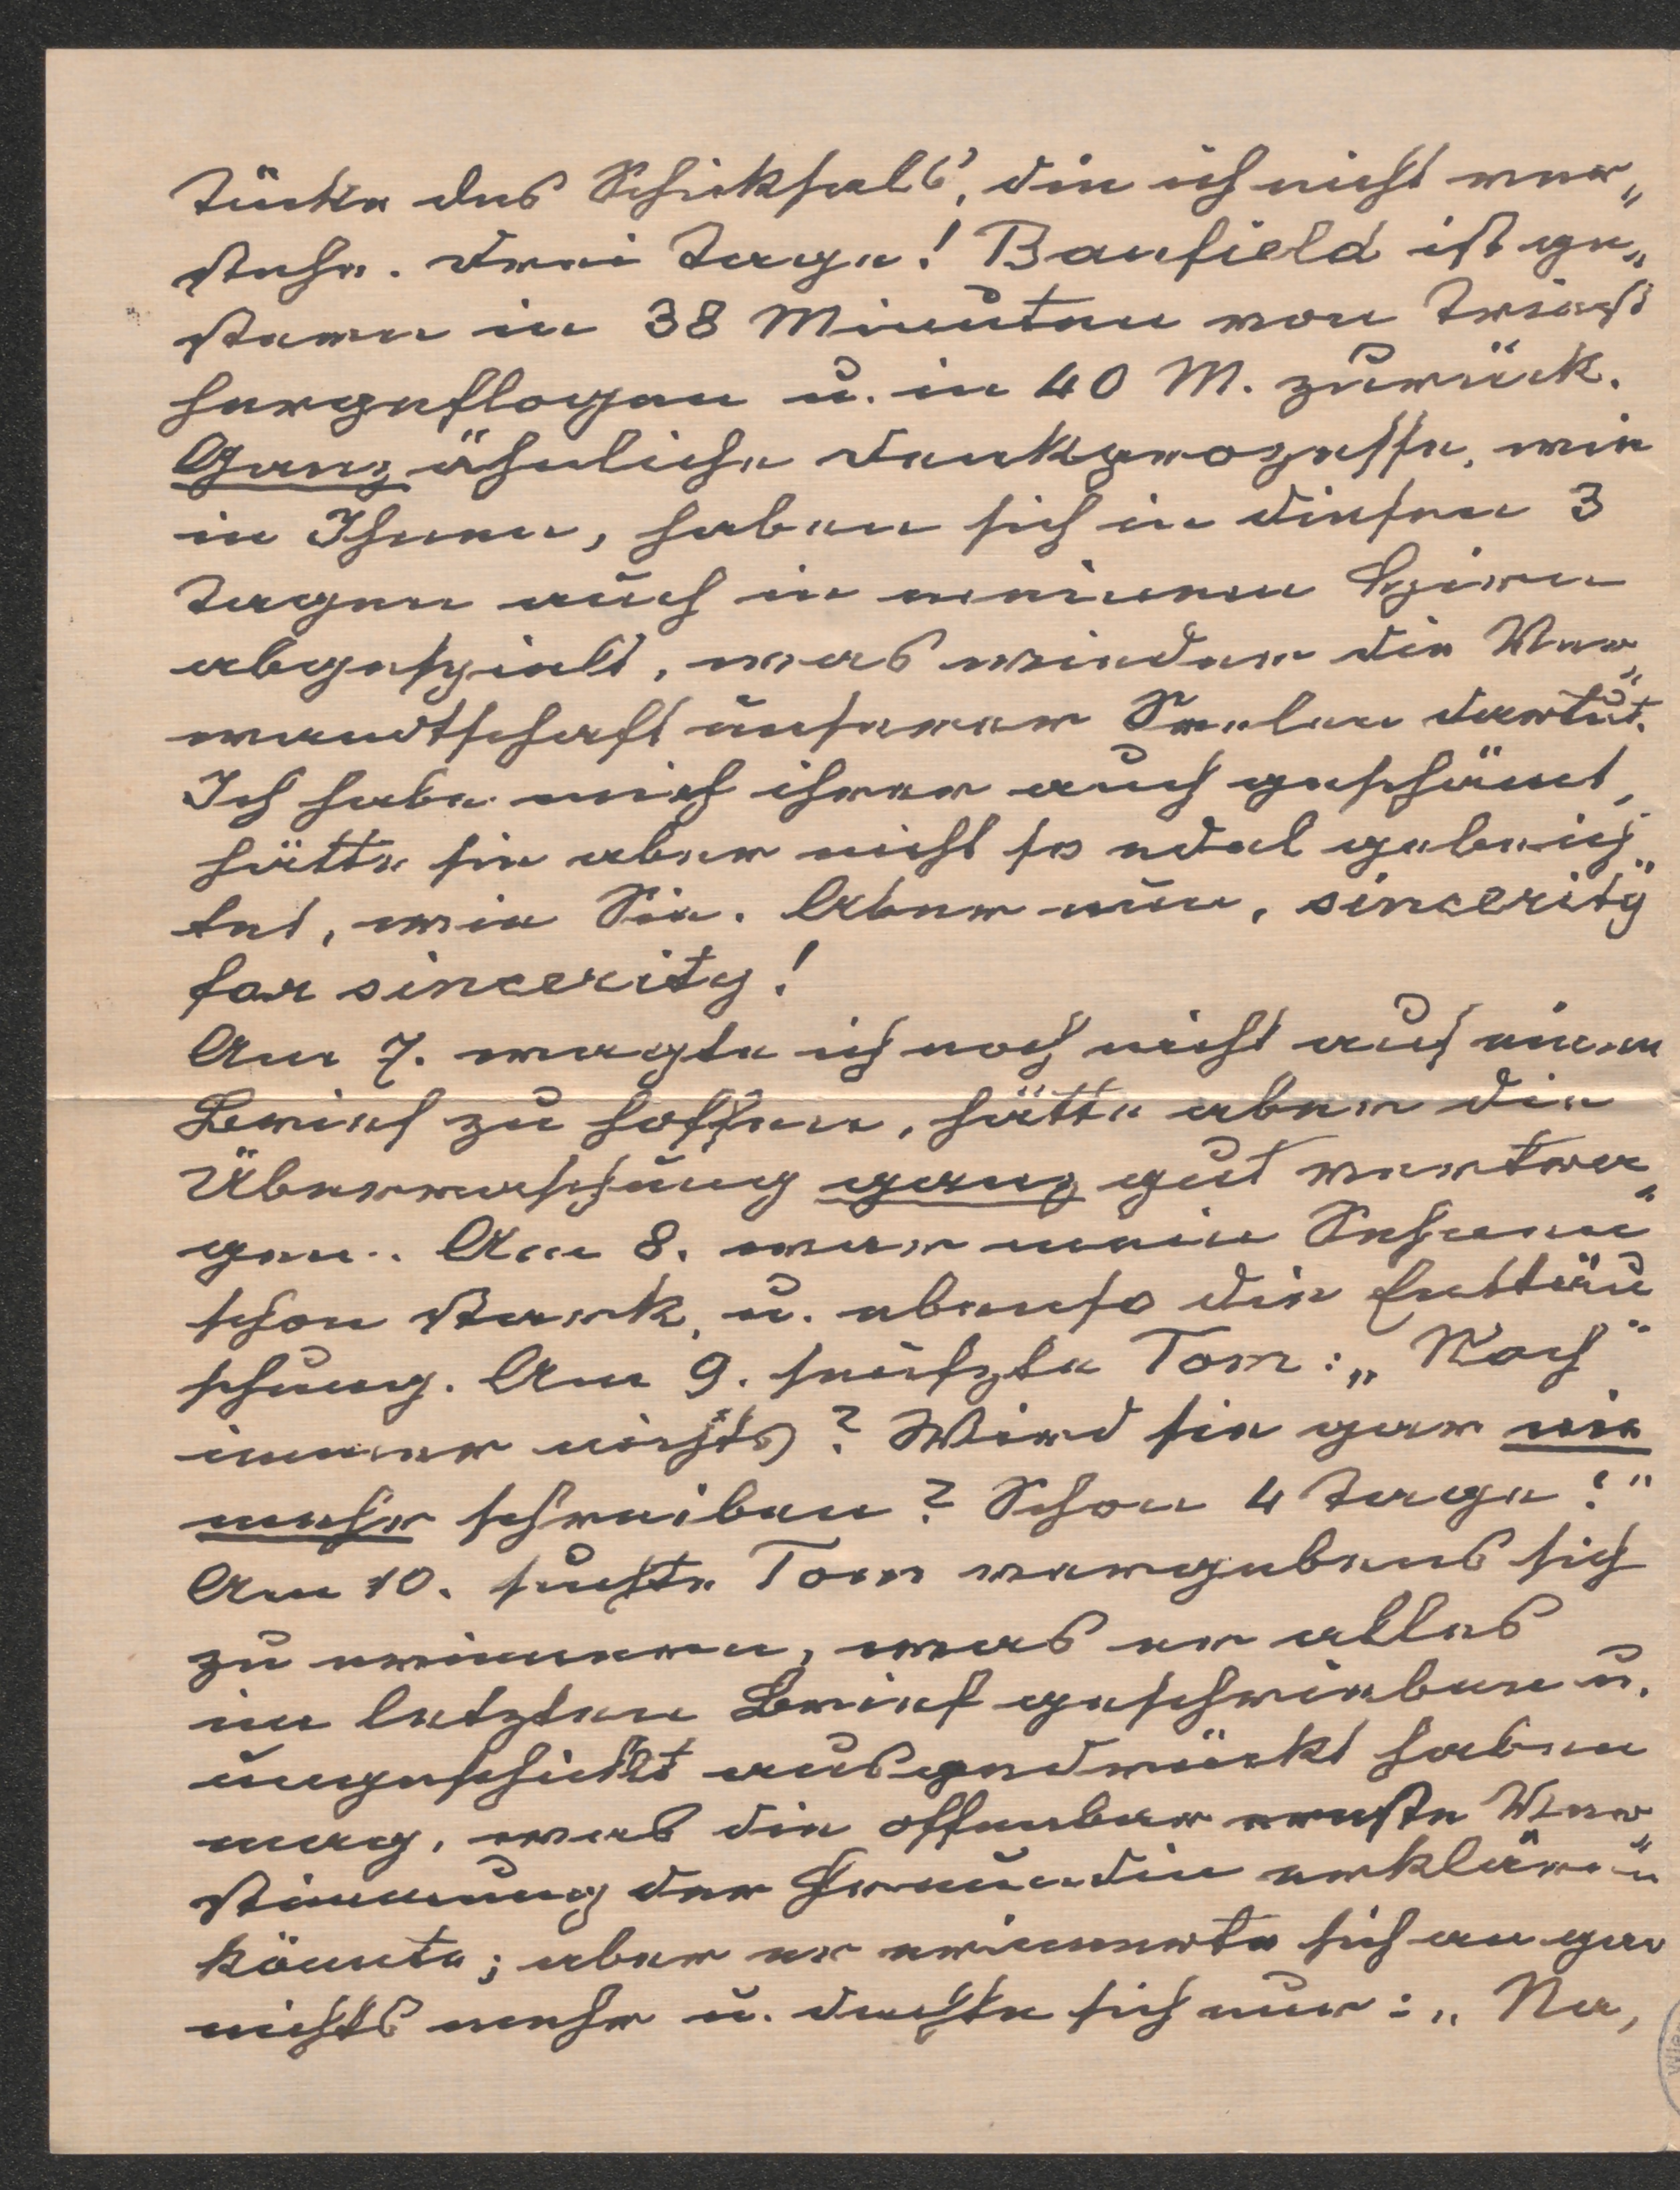 Tücke des Schicksals, die ich nicht ver„
stehe. Drei Tage! Banfield ist ge„
stern in 38 Minuten von Triest
hergeflogen u. in 40 M. zurück.
Ganz ähnliche Denkprozesse, wie
in Ihnen, haben sich in diesen 3
Tagen auch in meinem Hirn
abgespielt, was wieder die Ver„
wandtschaft unserer Seelen dartut.
Ich habe mich ihrer auch geschämt,
hätte sie aber nicht so edel gebeich„
tet, wie Sie. Aber nun, sincerity
for sincerity!
Am 7. wagte ich noch nicht auf einen
Brief zu hoffen, hätte aber die
Überraschung ganz gut vertra„
gen. Am 8. war mein Sehnen
schon stark, u. ebenso die Enttäu„
schung. Am 9. seufzte Tom: „Noch
immer nichts? Wird sie gar nie
mehr schreiben? Schon 4 Tage!"
Am 10. suchte Tom vergebens sich
zu erinnern, was er alles
im letzten Brief geschrieben u.
ungeschickt ausgedrückt haben
mag, was die offenbar ernste Ver„
stimmung der Freundin erklären
könnte; aber er erinnerte sich an gar
nichts mehr u. dachte sich nur: „Na,